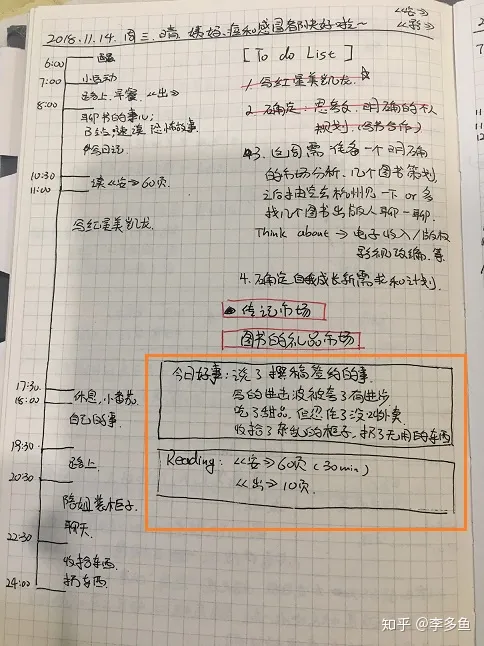 2018.11.14. 周三.晴 姨妈.痘和感冒都快好啦~
《容》
《彩》
6:00
7:00
小运动
路上.早餐.《出》
8:00
聊书的事儿;
今日记.
10:30
11:00
读《容》60页
写红星美凯龙
17:30
18:00
休息.小番茄
自己的事.
19:30
路上
20:30
陪姐装柜子.
聊天.
22:30
收拾东西
扔东西
24:00
[ To do List ]
1. 写红星美凯龙.
2. 确定:
规划.(写书合作)
3. 这周需准备一个明确
的市场分析.几个图书策划,
之后抽空去杭州见一下 or 多
找几个图书出版人聊一聊.
Think about → 电子收入/版权
影视改编.等
4. 确定自我成长新需求和计划.
传记市场
图书的礼品市场
今日好事: 说了撰稿签约的事.
写的 被夸了有进步
吃了甜品,但忍住了没叫外卖
收拾了杂乱的柜子,扔了无用的东西
Reading: 《容》60页(30min)
《出》10页.
知乎 @李多鱼